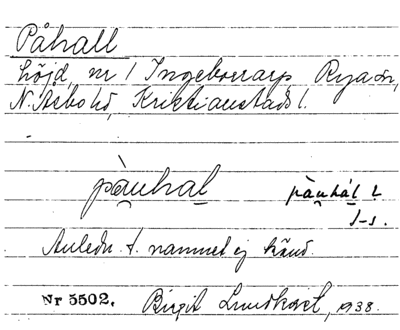 Påhall
höjd, nr 1 Ingeborrarp, Rya sn,
N. Åsbo hd, Kristianstads l.
pau̯hal pàu̯hál l
l-s.
Anledn. t. namnet ej känd.
Nr 5502. Birgit Lundkvist, 1938.